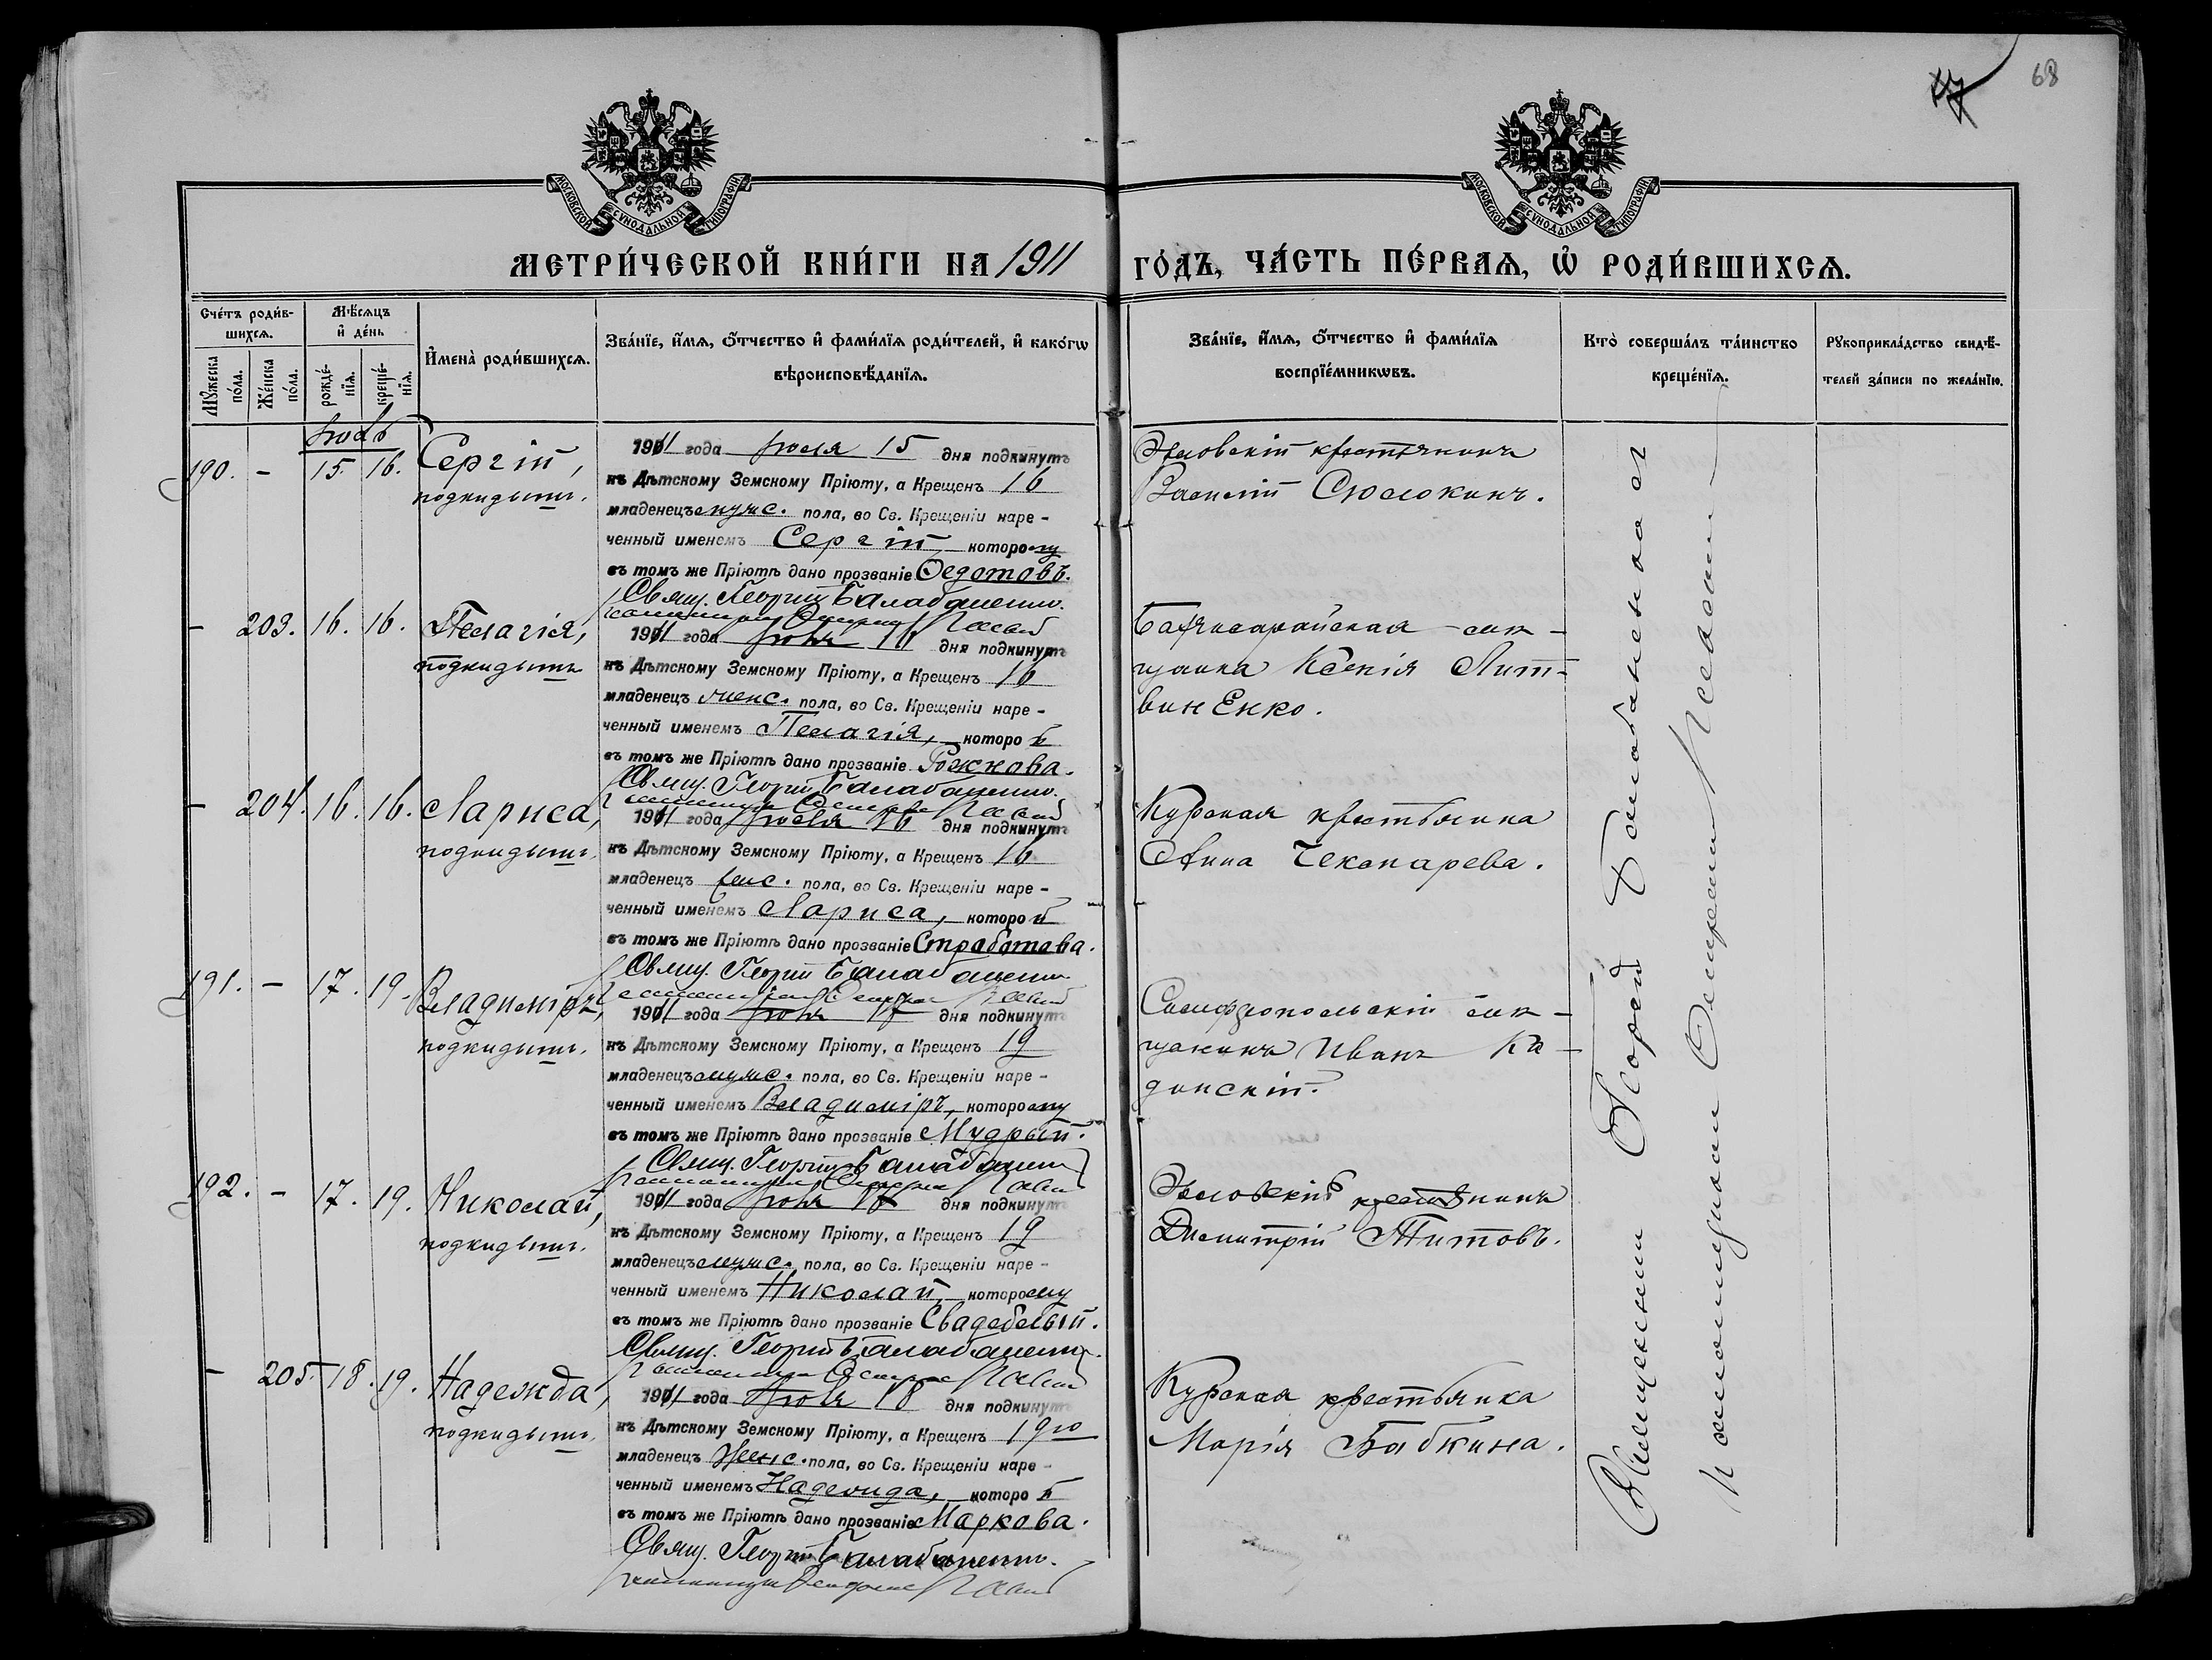 68
МОСКОВСКОЙ СѴНОДАЛЬНОЙ ТИПОГРАФІИ
МОСКОВСКОЙ СѴНОДАЛЬНОЙ ТИПОГРАФІИ
МЕТРИ́ЧЕСКОЙ КНИ́ГИ НА 1911 ГО́ДЪ, ЧА́СТЬ ПЕ́РВАЯ, Ѡ РОДИ́ВШИХСЯ.
Сче́тъ роди́в-
шихся.
Мꙋжеска по́ла.
Же́нска по́ла.
Мѣ́сяцъ
и де́нь
рожде́-
нїя.
креще́-
нїя.
Имена̀ роди́вшихся.
Зва́нїе, и́мя, ѻ́тчество и фами́лїя роди́телей, и како́гѡ
вѣроисповѣ́данїя.
Зва́нїе, и́мя, ѻ́тчество и фами́лїя
воспрїе́мникѡвъ.
Кто̀ соверша́лъ та́инство
креще́нїя.
Рꙋкоприкла́дство свидѣ́-
телей за́писи по жела́нїю.
190. – 15. 16. Сергій,
подкидышъ.
1911 года Іюля 15 дня подкинутъ
къ Дѣтскому Земскому Пріюту, а Крещенъ 16
младенецъ мужс. пола, во Св. Крещеніи наре-
ченный именемъ Сергій, которому
въ томъ же Пріютѣ дано прозваніе Ѳедотовъ.
Свящ. Георгій Балабаненко.
крестьянинъ
Василій
– 203. 16. 16. Пелагія,
подкидышъ
1911 года Іюля 16 дня подкинутъ
къ Дѣтскому Земскому Пріюту, а Крещенъ 16
младенецъ женс. пола, во Св. Крещеніи наре-
ченный именемъ Пелагія, которой
въ томъ же Пріютѣ дано прозваніе Рожкова.
Свящ. Георгій Балабаненко.
Бахчисарайская мѣ-
щанка Ксенія Лит-
виненко.
– 204. 16. 16. Лариса,
подкидышъ.
1911 года Іюля 16 дня подкинутъ
къ Дѣтскому Земскому Пріюту, а Крещенъ 16
младенецъ женс. пола, во Св. Крещеніи наре-
ченный именемъ Лариса, которой
въ томъ же Пріютѣ дано прозваніе
Свящ. Георгій Балабаненко
Курская крестьянка
Анна
191. – 17. 19. Владиміръ,
подкидышъ.
1911 года Іюля 17 дня подкинутъ
къ Дѣтскому Земскому Пріюту, а Крещенъ 19
младенецъ мужс. пола, во Св. Крещеніи наре-
ченный именемъ Владиміръ, которому
въ томъ же Пріютѣ дано прозваніе Мудрый.
Свящ. Георгій Балабаненко
Симферопольскій мѣ-
щанинъ Иванъ Ка-
динскій.
192. – 17. 19. Николай,
подкидышъ.
1911 года Іюля 17 дня подкинутъ
къ Дѣтскому Земскому Пріюту, а Крещенъ 19
младенецъ мужс. пола, во Св. Крещеніи наре-
ченный именемъ Николай, которому
въ томъ же Пріютѣ дано прозваніе
Свящ. Георгій Балабаненко.
крестьянинъ
Димитрій Титовъ.
– 205. 18. 19. Надежда,
подкидышъ.
1911 года Іюля 18 дня подкинутъ
къ Дѣтскому Земскому Пріюту, а Крещенъ 19го
младенецъ женс. пола, во Св. Крещеніи наре-
ченный именемъ Надежда, которой
въ томъ же Пріютѣ дано прозваніе Маркова.
Свящ. Георгій Балабаненко.
Курская крестьянка
Марія Бабкина.
Священникъ Георгій Балабаненко